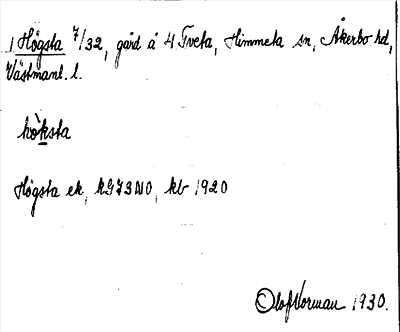 1 Högsta 7/32, gård å 4 Tveta, Himmeta sn, Åkerbo hd,
Västmanl. l.
hò̀ksta
Högsta ek, kG73NO, kb 1920
Olof Norman 1930.